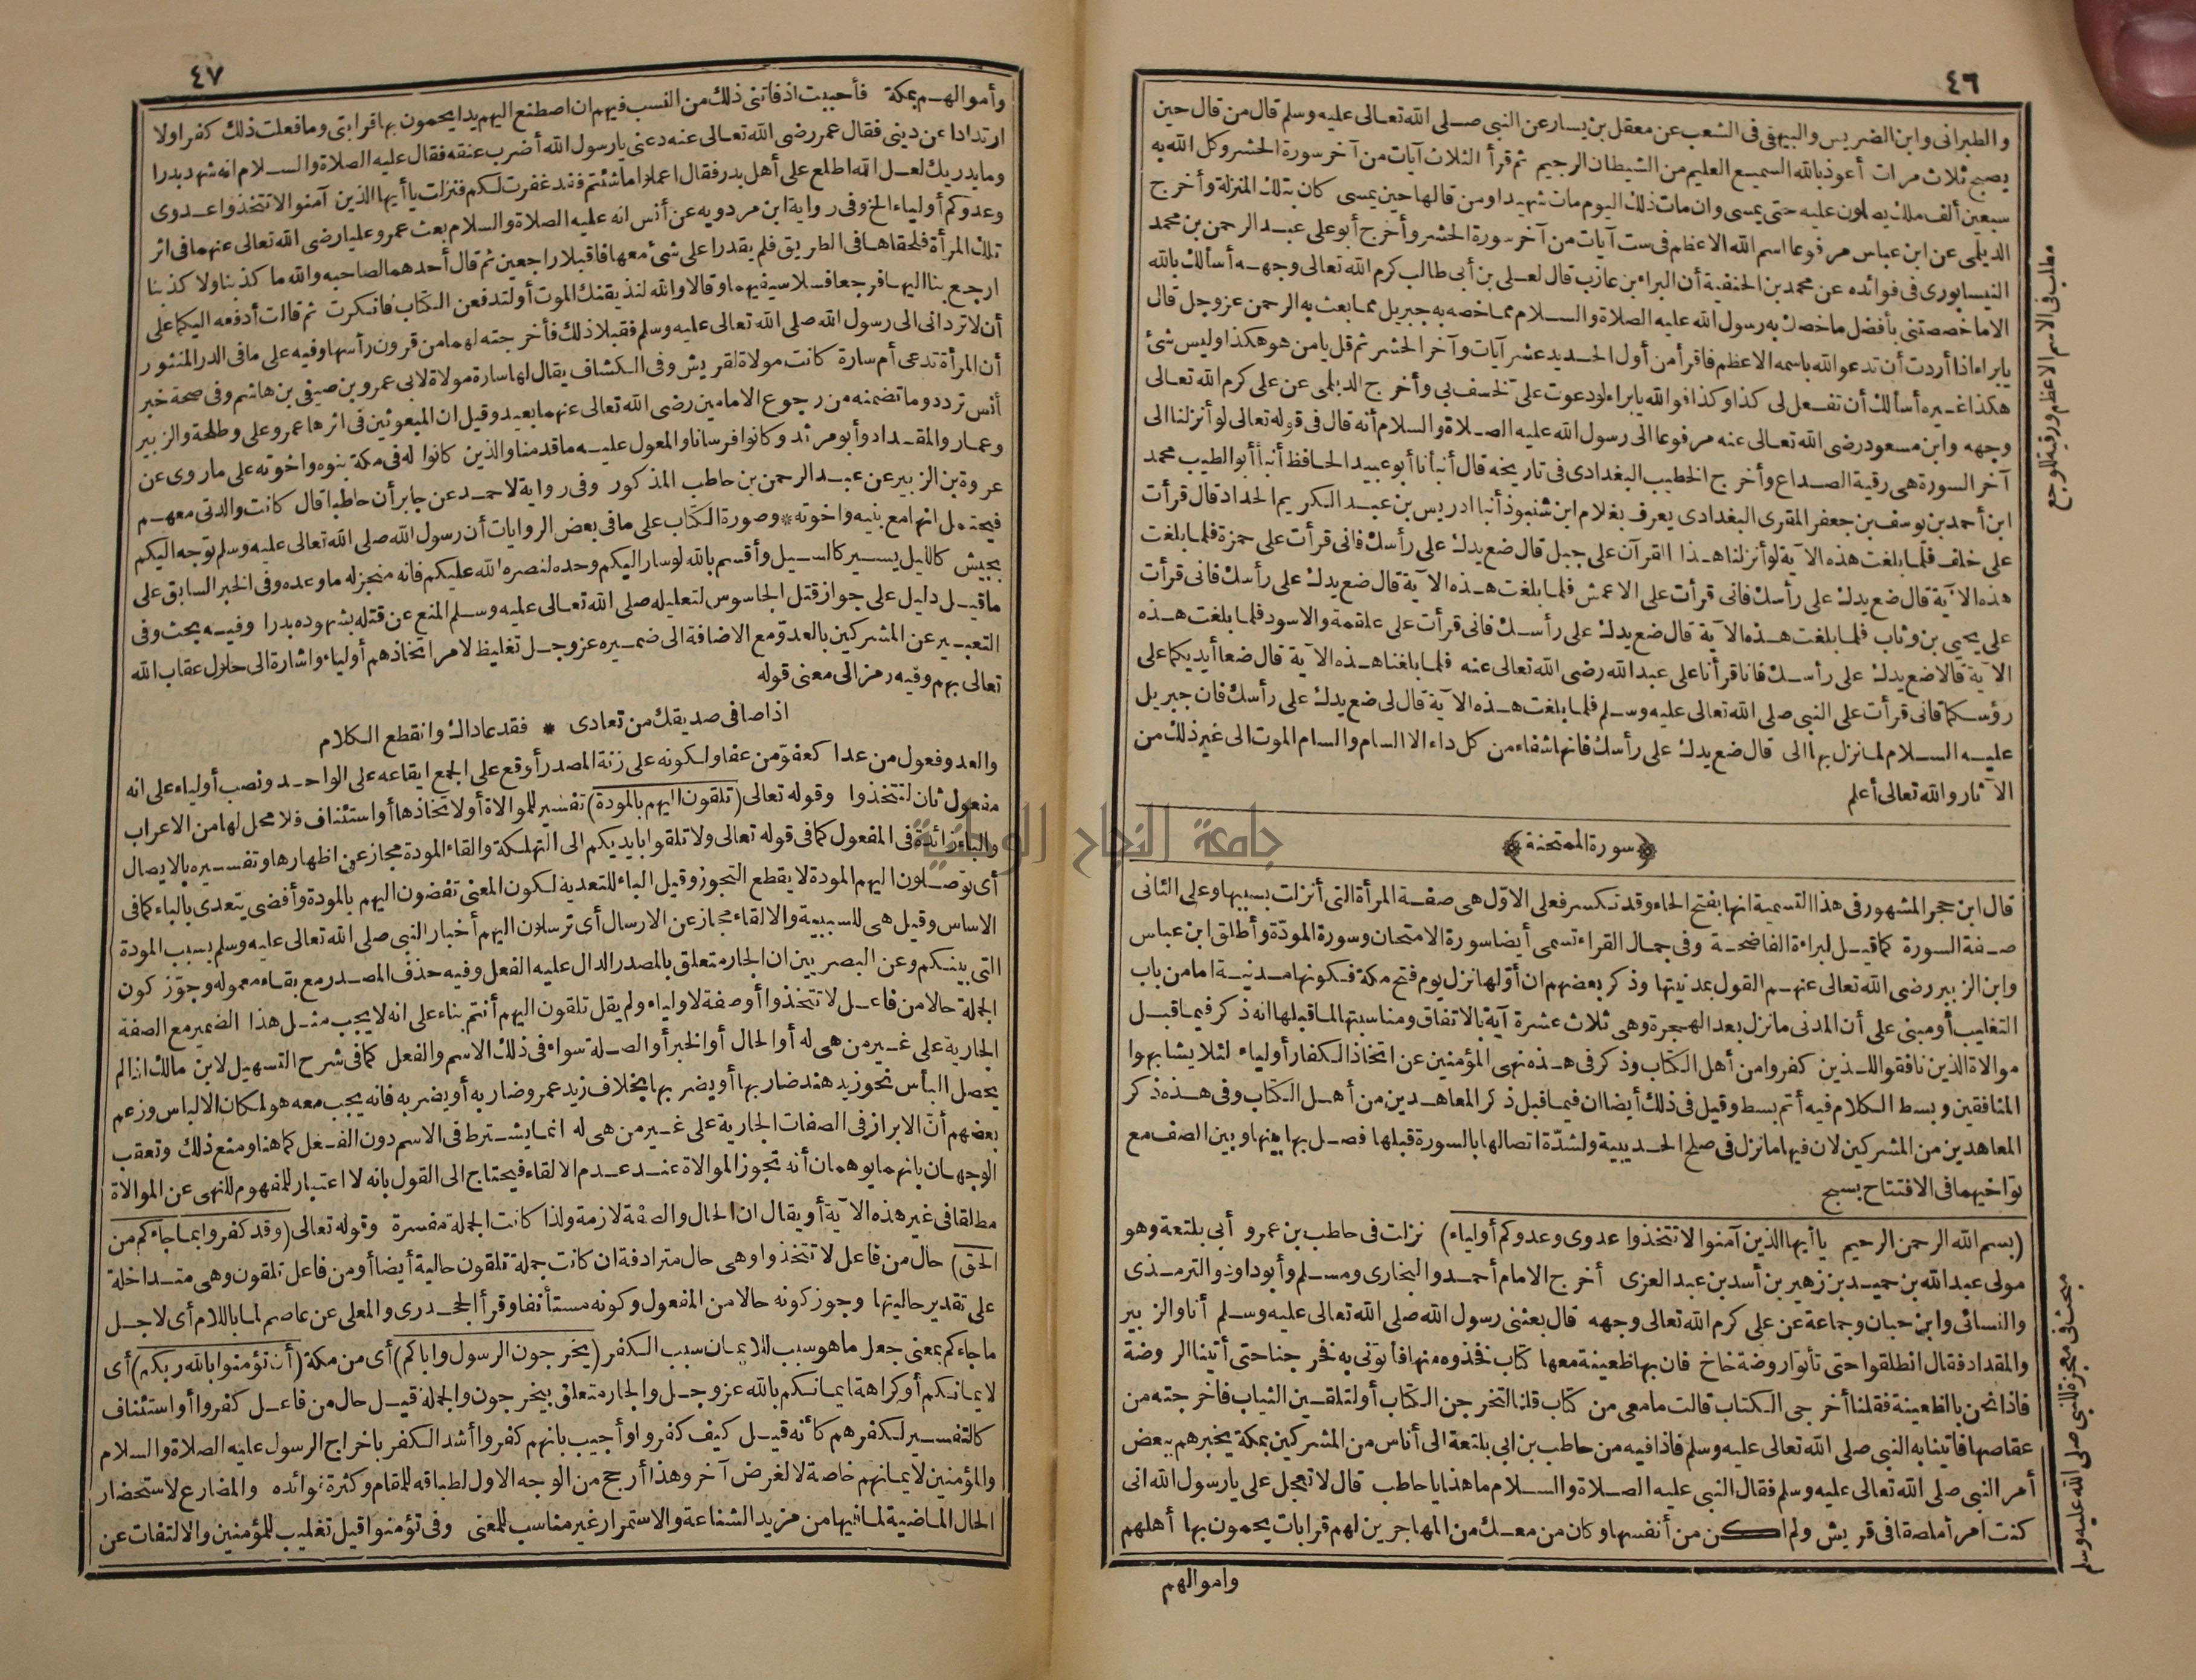 ٤٦
والطبرانى وابن الضريس والبيهقى فى الشعب عن معقل بن يسار عن النبى صلى الله تعالى عليه وسلم قال من قال حين
يصبح ثلاث مرات أعوذ بالله السميع العليم من الشيطان الرجيم ثم قرأ الثلاث آيات من آخر سورة الحشر وكل الله به
سبعين ألف ملك يصلون عليه حتى يمسى وان مات ذلك اليوم مات شهيدا ومن قالها حين يمسى كان بتلك المنزلة وأخرج
الديلمى عن ابن عباس مرفوعا اسم الله الاعظم فى ست آيات من آخر سورة الحشر وأخرج أبو على عبد الرحمن بن محمد
النيسابورى فى فوائده عن محمد بن الحنفية أن البراء بن عازب قال لعلى بن أبى طالب كرم الله تعالى وجهه أسألك بالله
الا ما خصصتنى بأفضل ما خصك به رسول الله عليه الصلاة والسلام مما خصه به جبريل مما بعث به الرحمن عز وجل قال
يا براء اذا أردت أن تدعو الله باسمه الاعظم فاقرأ من أول الحديد عشر آيات وآخر الحشر ثم قل يا من هو هكذا وليس شئ
هكذا غيره أسألك أن تفعل لى كذا وكذا فوالله يا براء لو دعوت على لخسف بى وأخرج الديلمى عن على كرم الله تعالى
وجهه وابن مسعود رضى الله تعالى عنه مرفوعا الى رسول الله عليه الصلاة والسلام أنه قال فى قوله تعالى لو أنزلنا الى
آخر السورة هى رقية الصداع وأخرج الخطيب البغدادى فى تاريخه قال أنبأنا أبو عبيد الحافظ أنبأ أبو الطيب محمد
ابن أحمد بن يوسف بن جعفر المقرى البغدادى يعرف بغلام ابن شنبوذ أنبا ادريس بن عبد الكريم الحداد قال قرأت
على خلف فلما بلغت هذه الآية لو أنزلنا هذا القرآن على جبل قال ضع يدك على رأسك فانى قرأت على حمزة فلما بلغت
هذه الآية قال ضع يدك على رأسك فانى قرأت على الاعمش فلما بلغت هذه الآية قال ضع يدك على رأسك فانى قرأت
على يحيى بن وثاب فلما بلغت هذه الآية قال ضع يدك على رأسك فانى قرأت على علقمة والاسود فلما بلغت هذه
الآية قالا ضع يدك على رأسك فانا قرأنا على عبد الله رضى الله تعالى عنه فلما بلغنا هذه الآية قال ضعا أيديكما على
رؤسكما فانى قرأت على النبى صلى الله تعالى عليه وسلم فلما بلغت هذه الآية قال لى ضع يدك على رأسك فان جبريل
عليه السلام لما نزل بها الى قال ضع يدك على رأسك فانها شفاء من كل داء الا السام والسام الموت الى غير ذلك من
الآثار والله تعالى أعلم
﴿سورة الممتحنة﴾
قال ابن حجر المشهور فى هذا التسمية انها بفتح الحاء وقد تكسر فعلى الاول هى صفة المرأة التى أنزلت بسببها وعلى الثانى
صفة السورة كما قيل لبراءة الفاضحة وفى جمال القراء تسمى أيضا سورة الامتحان وسورة المودّة وأطلق ابن عباس
وابن الزبير رضى الله تعالى عنهم القول بمدنيتها وذكر بعضهم ان أولها نزل يوم فتح مكة فكونها مدنية اما من باب
التغليب أو مبنى على أن المدنى ما نزل بعد الهجرة وهى ثلاث عشرة آية بالاتفاق ومناسبتها لما قبلها انه ذكر فيما قبل
موالاة الذين نافقوا للذين كفروا من أهل الكتاب وذكر فى هذه نهى المؤمنين عن اتخاذ الكفار أولياء لئلا يشابهوا
المنافقين وبسط الكلام فيه أتم بسط وقيل فى ذلك أيضا ان فيما قبل ذكر المعاهدين من أهل الكتاب وفى هذه ذكر
المعاهدين من المشركين لان فيها ما نزل فى صلح الحديبية ولشدّة اتصالها بالسورة قبلها فصل بها بينها وبين الصف مع
تواخيهما فى الافتتاح بسبح
(بسم الله الرحمن الرحيم يا أيها الذين آمنوا لا تتخذوا عدوى وعدوكم أولياء) نزلت فى حاطب بن عمرو أبى بلتعة وهو
مولى عبد الله بن حميد بن زهير بن أسد بن عبد العزى أخرج الامام أحمد والبخارى ومسلم وأبو داود والترمذى
والنسائى وابن حبان وجماعة عن على كرم الله تعالى وجهه قال بعثنى رسول الله صلى الله تعالى عليه وسلم أنا والزبير
والمقداد فقال انطلقوا حتى تأتوا روضة خاخ فان بها ظعينة معها كتاب فخذوه منها فأتونى به فخرجنا حتى أتينا الروضة
فاذا نحن بالظعينة فقلنا أخرجى الكتاب قالت ما معى من كتاب قلنا لتخرجن الكتاب أو لتلقين الثياب فاخرجته من
عقاصها فأتينا به النبى صلى الله تعالى عليه وسلم فاذا فيه من حاطب بن أبى بلتعة الى أناس من المشركين بمكة يخبرهم ببعض
أمر النبى صلى الله تعالى عليه وسلم فقال النبى عليه الصلاة والسلام ما هذا يا حاطب قال لا تعجل على يا رسول الله انى
كنت امرأ ملصقا فى قريش ولم اكن من أنفسها وكان من معك من المهاجرين لهم قرابات يحمون بها أهلهم
وأموالهم
مطلب فى الاسم الاعظم ورقية الوجع
مبحث فى معجزة للنبى صلى الله عليه وسلم
٤٧
وأموالهم بمكة فأحببت اذ فاتنى ذلك من النسب فيهم ان اصطنع اليهم يدا يحمون بها قرابتى وما فعلت ذلك كفرا ولا
ارتدادا عن دينى فقال عمر رضى الله تعالى عنه دعنى يا رسول الله أضرب عنقه فقال عليه الصلاة والسلام انه شهد بدرا
وما يدريك لعل الله اطلع على أهل بدر فقال اعملوا ما شئتم فقد غفرت لكم فنزلت يا أيها الذين آمنوا لا تتخذوا عدوى
وعدوكم أولياء الخ وفى رواية ابن مردويه عن أنس انه عليه الصلاة والسلام بعث عمر وعليا رضى الله تعالى عنهما فى اثر
تلك المرأة فلحقاها فى الطريق فلم يقدرا على شئ معها فاقبلا راجعين ثم قال أحدهما لصاحبه والله ما كذبنا ولا كذبنا
ارجع بنا اليها فرجعا فسلا سيفيهما وقالا والله لنذيقنك الموت أو لتدفعن الكتاب فانكرت ثم قالت أدفعه اليكما على
أن لا تردانى الى رسول الله صلى الله تعالى عليه وسلم فقبلا ذلك فأخرجته لهما من قرون رأسها وفيه على ما فى الدر المنثور
أن المرأة تدعى أم سارة كانت مولاة لقريش وفى الكشاف يقال لها سارة مولاة لابى عمرو بن صيفى بن هاشم وفى صحة خبر
أنس تردد وما تضمنه من رجوع الامامين رضى الله تعالى عنهما بعيد وقيل ان المبعوثين فى اثرها عمر وعلى وطلحة والزبير
وعمار والمقداد وأبو مرثد وكانوا فرسانا والمعول عليه ما قدمنا والذين كانوا له فى مكة بنوه واخوته على ما روى عن
عروة بن الزبير عن عبد الرحمن بن حاطب المذكور وفى رواية لاحمد عن جابر أن حاطبا قال كانت والدتى معهم
فيحتمل انها مع بنيه واخوته * وصورة الكتاب على ما فى بعض الروايات أن رسول الله صلى الله تعالى عليه وسلم توجه اليكم
بجيش كالليل يسير كالسيل وأقسم بالله لو سار اليكم وحده لنصره الله عليكم فانه منجز له ما وعده وفى الخبر السابق على
ما قيل دليل على جواز قتل الجاسوس لتعليله صلى الله تعالى عليه وسلم المنع عن قتله بشهوده بدرا وفيه بحث وفى
التعبير عن المشركين بالعدوّ مع الاضافة الى ضميره عز وجل تغليظ لامر اتخاذهم أولياء واشارة الى حلول عقاب الله
تعالى بهم وفيه رمز الى معنى قوله
اذا صافى صديقك من تعادى * فقد عاداك وانقطع الكلام
والعدو فعول من عدا كعفوّ من عفا ولكونه على زنة المصدر أوقع على الجمع ايقاعه على الواحد ونصب أولياء على انه
مفعول ثان لتتخذوا وقوله تعالى (تلقون اليهم بالمودة) تفسير للموالاة أو لاتخاذها أو استئناف فلا محل لها من الاعراب
والباء زائدة فى المفعول كما فى قوله تعالى ولا تلقوا بايديكم الى التهلكة والقاء المودة مجاز عن اظهارها وتفسيره بالايصال
أى توصلون اليهم المودة لا يقطع التجوز وقيل الباء للتعدية لكون المعنى تفضون اليهم بالمودة وأفضى يتعدى بالباء كما فى
الاساس وقيل هى للسببية والالقاء مجاز عن الارسال أى ترسلون اليهم أخبار النبى صلى الله تعالى عليه وسلم بسبب المودة
التى بينكم وعن البصريين ان الجار متعلق بالمصدر الدال عليه الفعل وفيه حذف المصدر مع بقاء معموله وجوّز كون
الجملة حالا من فاعل لا تتخذوا أو صفة لاولياء ولم يقل تلقون اليهم أنتم بناء على انه لا يجب مثل هذا الضمير مع الصفة
الجارية على غير من هى له أو الحال أو الخبر أو الصلة سواء فى ذلك الاسم والفعل كما فى شرح التسهيل لابن مالك اذا لم
يحصل الباس نحو زيد هند ضاربها أو يضربها بخلاف زيد عمرو ضاربه أو يضربه فانه يجب معه هو لمكان الالباس وزعم
بعضهم أن الابراز فى الصفات الجارية على غير من هى له انما يشترط فى الاسم دون الفعل كما هنا ومنع ذلك وتعقب
الوجهان بانهما يوهمان أنه تجوز الموالاة عند عدم الالقاء فيحتاج الى القول بانه لا اعتبار للمفهوم للنهى عن الموالاة
مطلقا فى غير هذه الآية أو يقال ان الحال والصفة لازمة ولذا كانت الجملة مفسرة وقوله تعالى (وقد كفروا بما جاءكم من
الحق) حال من فاعل لا تتخذوا وهى حال مترادفة ان كانت جملة تلقون حالية أيضا أو من فاعل تلقون وهى متداخلة
على تقدير حاليتها وجوز كونه حالا من المفعول وكونه مستأنفا وقرأ الجحدرى والمعلى عن عاصم لما باللام أى لاجل
ما جاءكم بمعنى جعل ما هو سبب للايمان سبب الكفر (يخرجون الرسول واياكم) أى من مكة (أن تؤمنوا بالله ربكم) أى
لايمانكم أو كراهة ايمانكم بالله عز وجل والجار متعلق بيخرجون والجملة قيل حال من فاعل كفروا أو استئناف
كالتفسير لكفرهم كأنه قيل كيف كفروا وأجيب بانهم كفروا أشد الكفر باخراج الرسول عليه الصلاة والسلام
والمؤمنين لايمانهم خاصة لا لغرض آخر وهذا أرجح من الوجه الاول لطباقه للمقام وكثرة فوائده والمضارع لاستحضار
الحال الماضية لما فيها من مزيد الشناعة والاستمرار غير مناسب للمعنى وفى تؤمنوا قيل تغليب للمؤمنين والالتفات عن
جامعة النجاح الوطنية